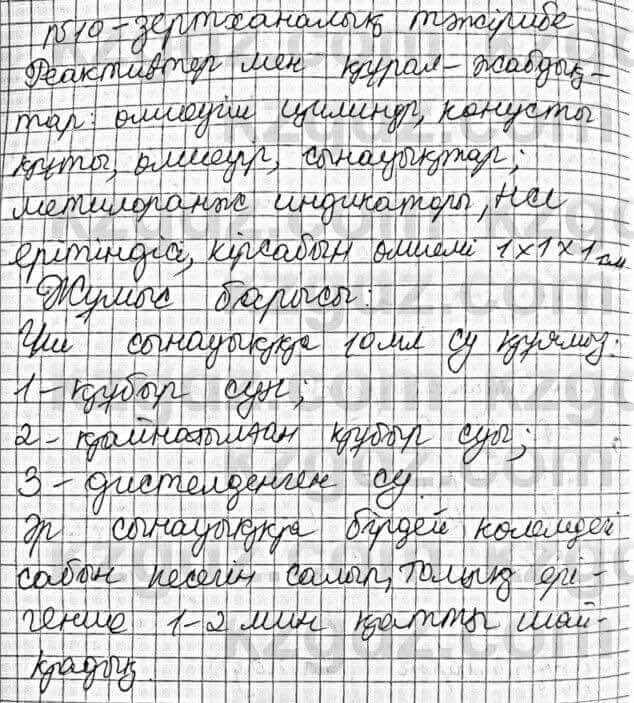 №10-зертханалық тәжірибе
Реактивтер мен құрал-жабдық-
тар: өлшеуіш цилиндр, конусты
құты, өлшеуіш, сынауықтар;
метилоранж индикаторы, HCl
ерітіндісі, кірсабын өлшемі 1x1x1 см
Жұмыс барысы:
Үш сынауыққа 10 мл су құямыз:
1-құбыр суы;
2-қайнатылған құбыр суы;
3-дистелденген су.
Әр сынауыққа бірдей көлемдегі
сабын кесегін салып, толық ері-
генше 1-2 мин қатты шай-
қадық.
kzgdz.com